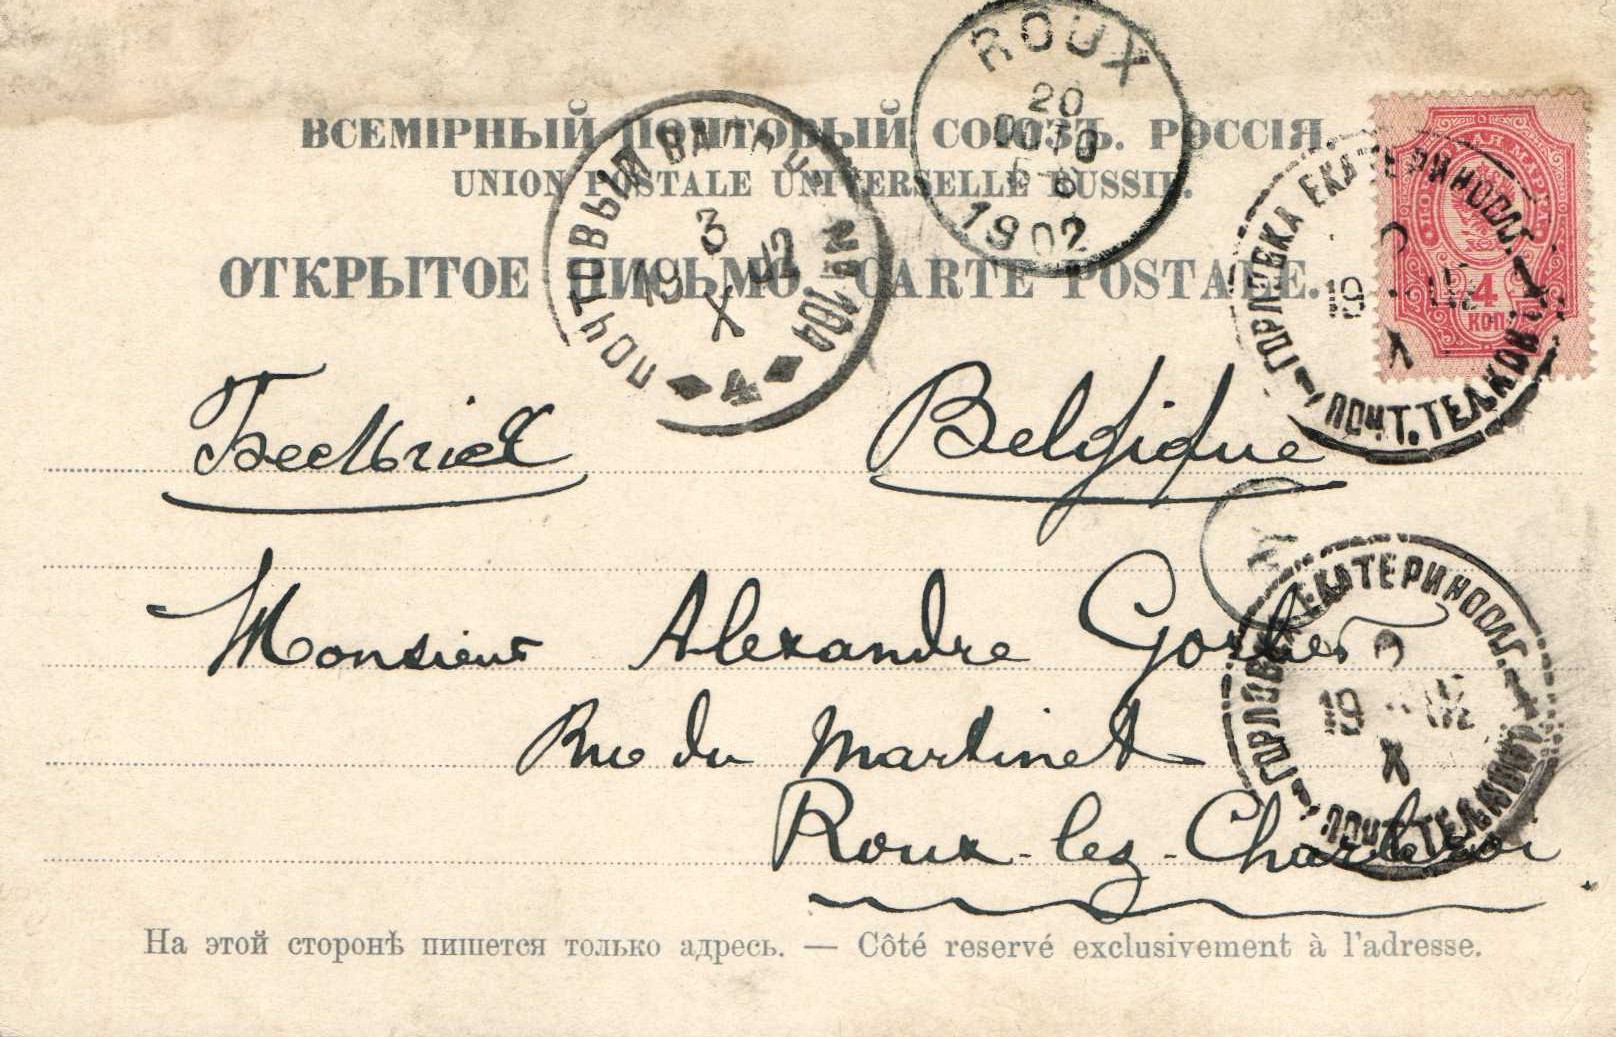 ROUX
20
OCTO
5-6
1902
ВСЕМІРНЫЙ ПОЧТОВЫЙ СОЮЗЪ. РОССІЯ.
UNION POSTALE UNIVERSELLE RUSSIE.
ОТКРЫТОЕ ПИСЬМО. CARTE POSTALE.
ПОЧТОВЫЙ ВАГОНЪ № 104
3
19 02
X
4
4
КОП
ГОРЛОВКА ЕКАТЕРИНОСЛ. Г.
19 02
X
ПОЧТ. ТЕЛ. КОН.
Belgique
Monsieur Alexandre
Rue du Martinet
Roux-lez-Charleroi
ГОРЛОВКА ЕКАТЕРИНОСЛ. Г.
19 02
X
ПОЧТ. ТЕЛ. КОН.
На этой сторонѣ пишется только адресь. — Côté reservé exclusivement à l'adresse.